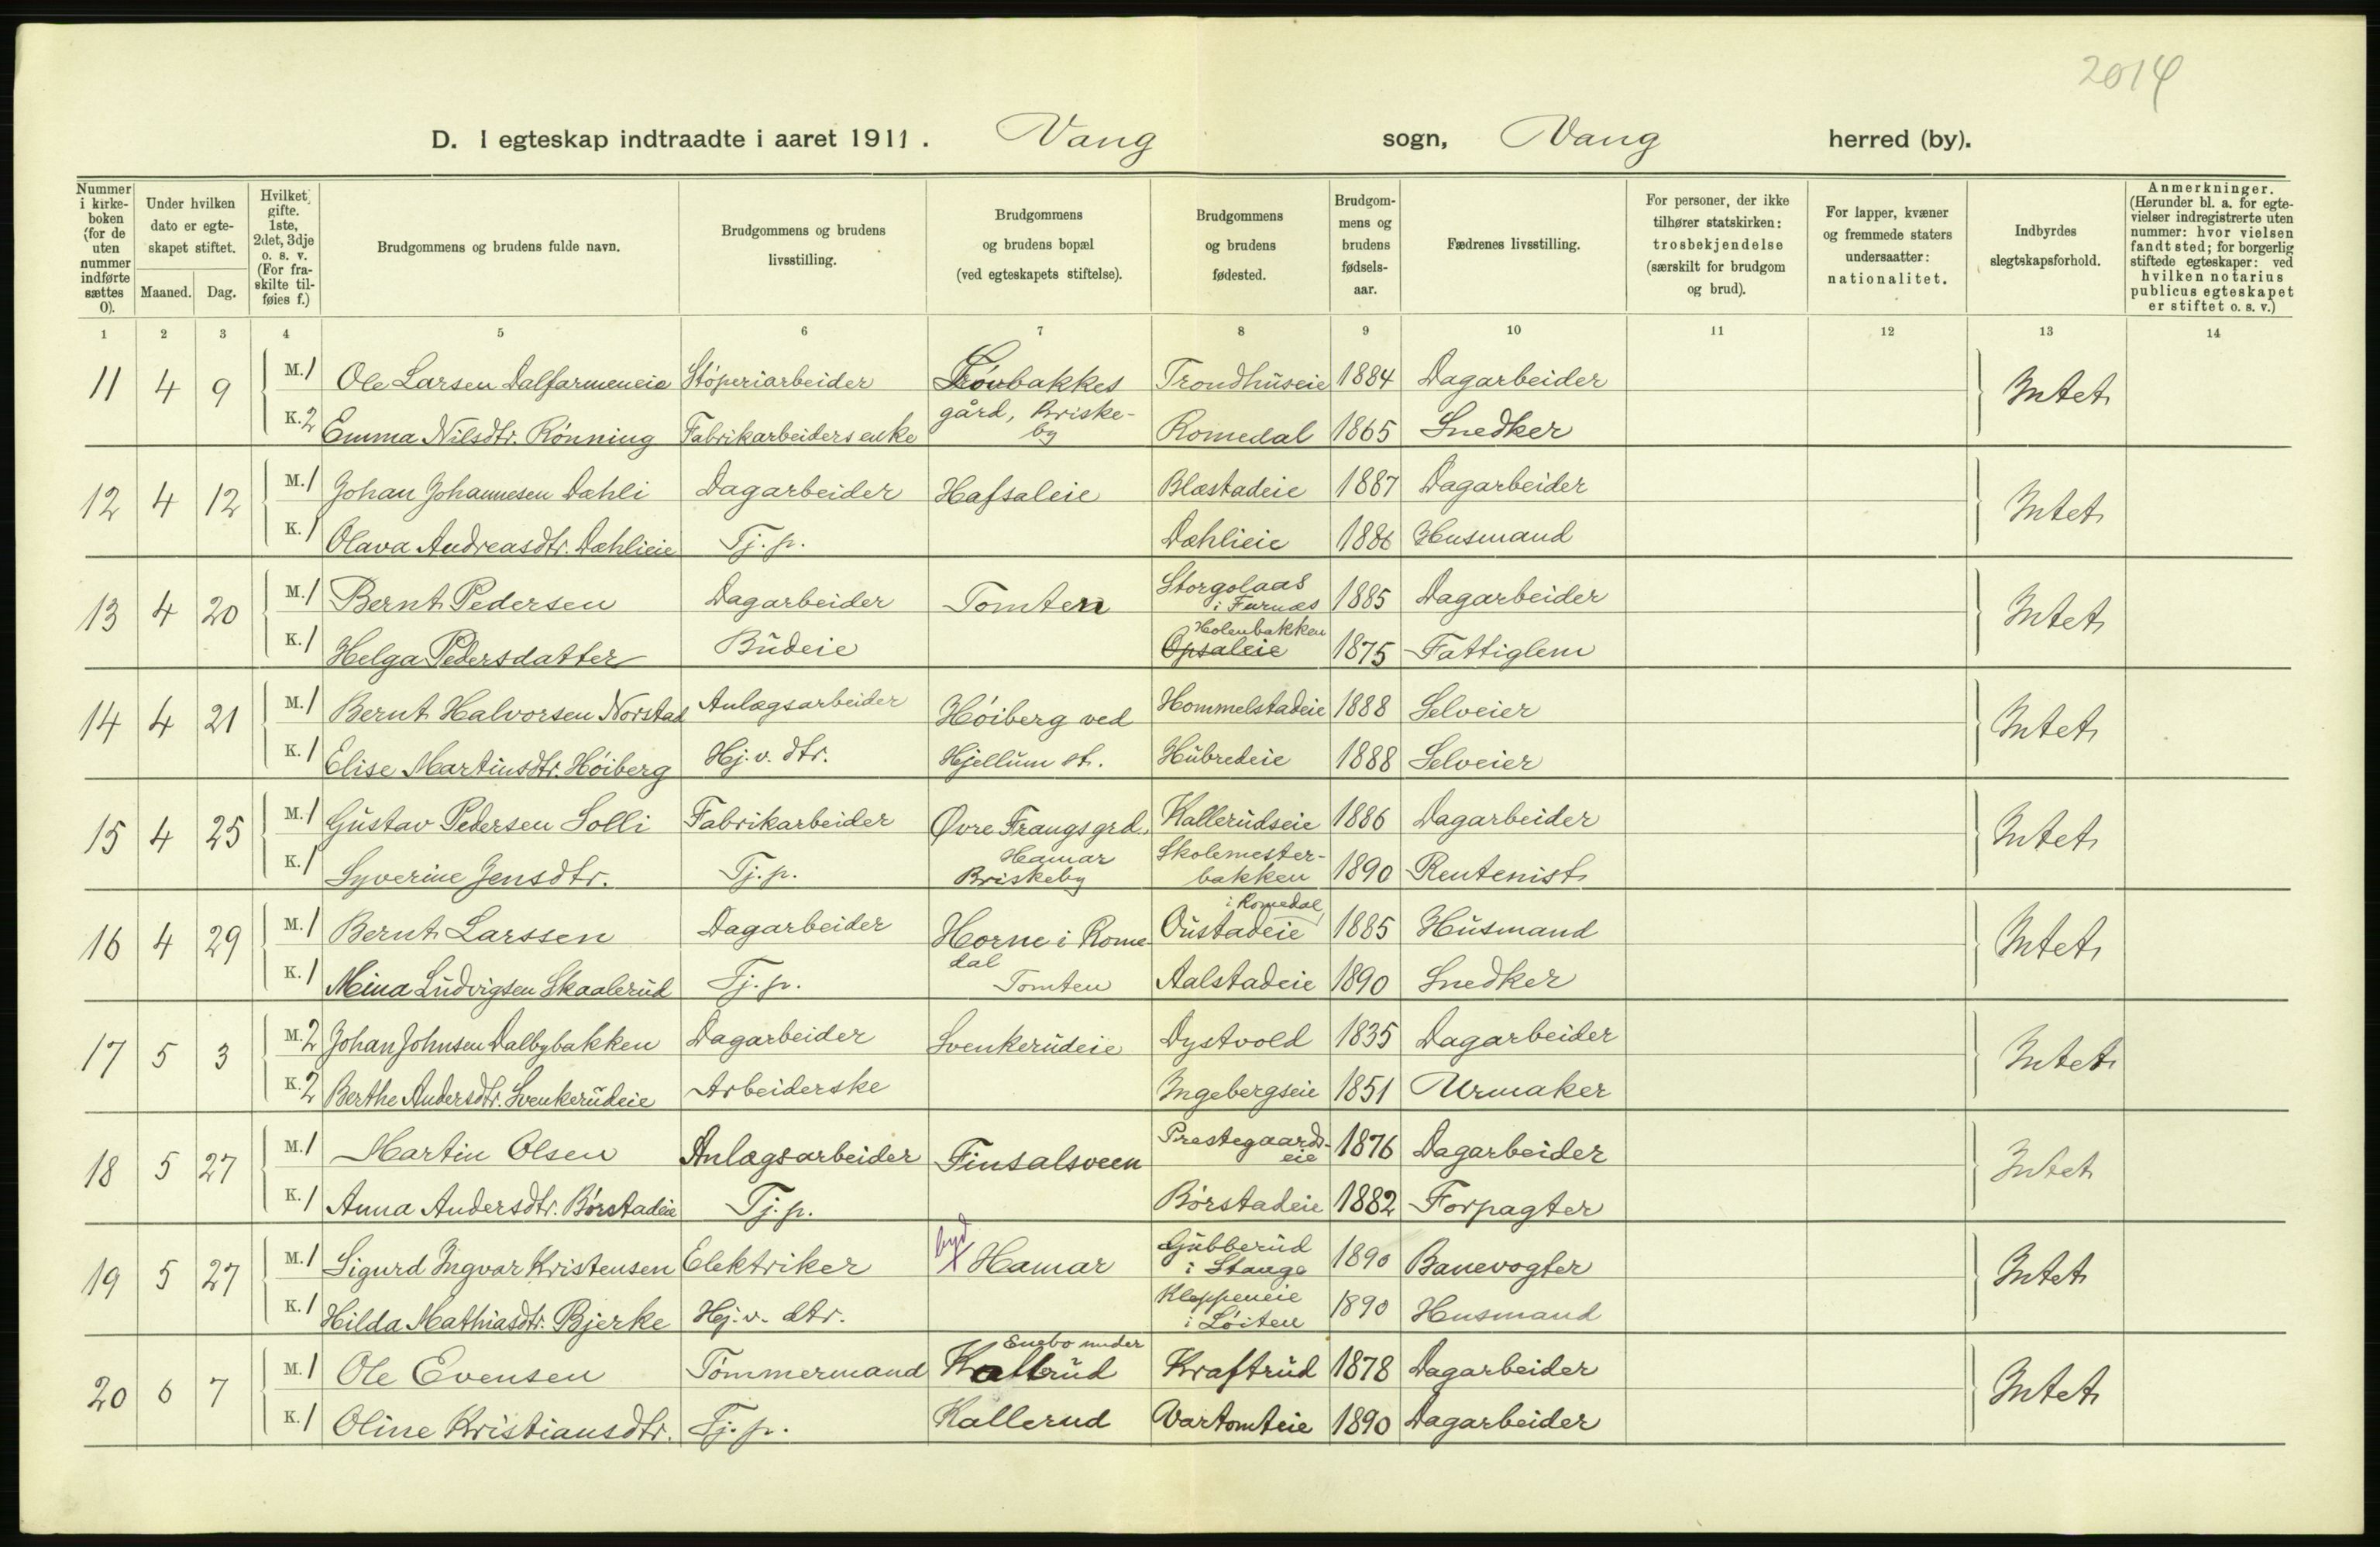 2014
D. I egteskap indtraadte i aaret 1911. Vang sogn, Vang herred (by).
Nummer i kirkeboken (for de uten nummer indførte sættes 0).
Under hvilken dato er egteskapet stiftet.
Maaned. Dag.
Hvilket gifte. 1ste, 2det, 3dje o. s. v. (For fraskilte tilføies f.)
Brudgommens og brudens fulde navn.
Brudgommens og brudens livsstilling.
Brudgommens og brudens bopæl (ved egteskapets stiftelse).
Brudgommens og brudens fødested.
Brudgommens og brudens fødselsaar.
Fædrenes livsstilling.
For personer, der ikke tilhører statskirken: trosbekjendelse (særskilt for brudgom og brud).
For lapper, kvæner og fremmede staters undersaatter: nationalitet.
Indbyrdes slegtskapsforhold.
Anmerkninger. (Herunder bl. a. for egtevielser indregistrerte uten nummer: hvor vielsen fandt sted; for borgerlig stiftede egteskaper: ved hvilken notarius publicus egteskapet er stiftet o. s. v.)
1 2 3 4 5 6 7 8 9 10 11 12 13 14
11 4 9 M. 1 Ole Larsen Dalfarmeneie Støperiarbeider bakkes Trondhuseie 1884 Dagarbeider Intet
K. 2 Emma Nilsdtr. Rønning Fabrikarbeiders enke gård, Briskeby Romedal 1865 Snedker
12 4 12 M. 1 Johan Johannesen Dæhli Dagarbeider Hafsaleie Blæstadeie 1887 Dagarbeider Intet
K. 1 Olava Andreasdtr. Dæhlieie Tj. p. Dæhlieie 1886 Husmand
13 4 20 M. 1 Bernt Pedersen Dagarbeider Tomten Storgolaas i Furnæs 1885 Dagarbeider Intet
K. 1 Helga Pedersdatter Budeie Holenbakken Opsaleie 1875 Fattiglem
14 4 21 M. 1 Bernt Halvorsen Norstad Anlægsarbeider Høiberg ved Hommelstadeie 1888 Selveier Intet
K. 1 Elise Martinsdtr. Høiberg Hj. v. dtr. Hjellum st. Hubredeie 1888 Selveier
15 4 25 M. 1 Gustav Pedersen Solli Fabrikarbeider Øvre Frangs grd., Hamar Kallerudseie 1886 Dagarbeider Intet
K. 1 Syverine Jensdtr. Tj. p. Briskeby Skolemesterbakken 1890 Rentenist
16 4 29 M. 1 Bernt Larssen Dagarbeider Horne i Romedal Oustadeie i Romedal 1885 Husmand Intet
K. 1 Mina Ludvigsen Skaalerud Tj. p. Tomten Aalstadeie 1890 Snedker
17 5 3 M. 2 Johan Johnsen Dalbybakken Dagarbeider Svenkerudeie Dystvold 1835 Dagarbeider Intet
K. 2 Berthe Andersdtr. Svenkerudeie Arbeiderske Ingebergseie 1851 Urmaker
18 5 27 M. 1 Martin Olsen Anlægsarbeider Finsalsveen Prestegaardseie 1876 Dagarbeider Intet
K. 1 Anna Andersdtr. Børstadeie Tj. p. Børstadeie 1882 Forpagter
19 5 27 M. 1 Sigurd Ingvar Kristensen Elektriker byd x Hamar Gubberud i Stange 1890 Banevogter Intet
K. 1 Hilda Mathiasdtr. Bjerke Hj. v. dtr. Kleppeneie i Løiten 1890 Husmand
20 6 7 M. 1 Ole Evensen Tømmermand Enebo under Kraftrud 1878 Dagarbeider Intet
K. 1 Oline Kristiansdtr. Tj. p. Kallerud Vartomteie 1890 Dagarbeider